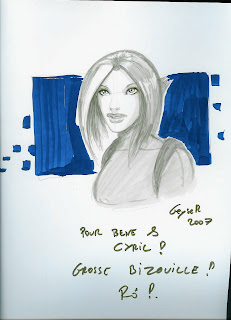 GeyseR
2007
POUR BENE &
CYRIL !
GROSSE BIZOUILLE !
Rô !